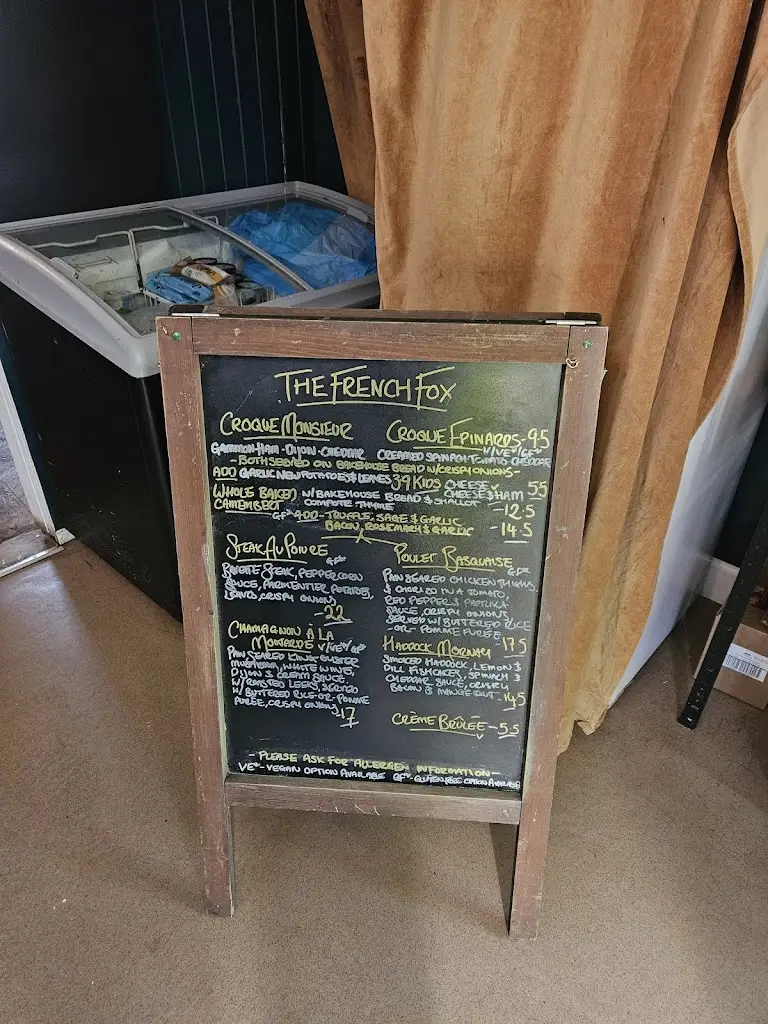 THE FRENCH FOX
CROQUE MONSIEUR
CROQUE EPINARDS - 9.5
GAMMON HAM - DIJON - CHEDDAR
V/VE*/GF*
CREAMED SPINACH TOMATO CHEDDAR
- BOTH SERVED ON BAKEHOUSE BREAD W/CRISPY ONIONS -
ADD GARLIC NEW POTATOES & LEAVES 3.9
KIDS CHEESE V
CHEESE & HAM 5.5
WHOLE BAKED CAMEMBERT
W/ BAKEHOUSE BREAD & SHALLOT
COMPOTE THYME
- 12.5
GF* ADD - TRUFFLE, SAGE & GARLIC
BACON, ROSEMARY & GARLIC
- 14.5
STEAK AU POIVRE
GF*
BAVETTE STEAK, PEPPERCORN
SAUCE, PARMENTIER POTATOES,
LEAVES, CRISPY ONIONS
- 22
CHAMAGNON À LA
MOUTARDE V/VE*/GF*
PAN SEARED KING OYSTER
MUSHROOM, WHITE WINE,
DIJON & CREAM SAUCE,
W/ ROASTED LEEKS, SERVED
W/ BUTTERED RICE - OR - POMME
PURÉE, CRISPY ONIONS
- 17
POULET BASQUAISE
GF*
PAN SEARED CHICKEN THIGHS
& CHORIZO IN A TOMATO,
RED PEPPER & PAPRIKA
SAUCE, CRISPY ONIONS
SERVED W/ BUTTERED RICE
- OR - POMME PURÉE
17.5
HADDOCK MORNAY
SMOKED HADDOCK, LEMON &
DILL FISHCAKES, SPINACH &
CHEDDAR SAUCE, CRISPY
BACON &
14.5
CRÈME BRÛLÉE - 5.5
V
- PLEASE ASK FOR ALLERGEN INFORMATION -
VE* - VEGAN OPTION AVAILABLE GF* - GLUTEN FREE OPTION AVAILABLE